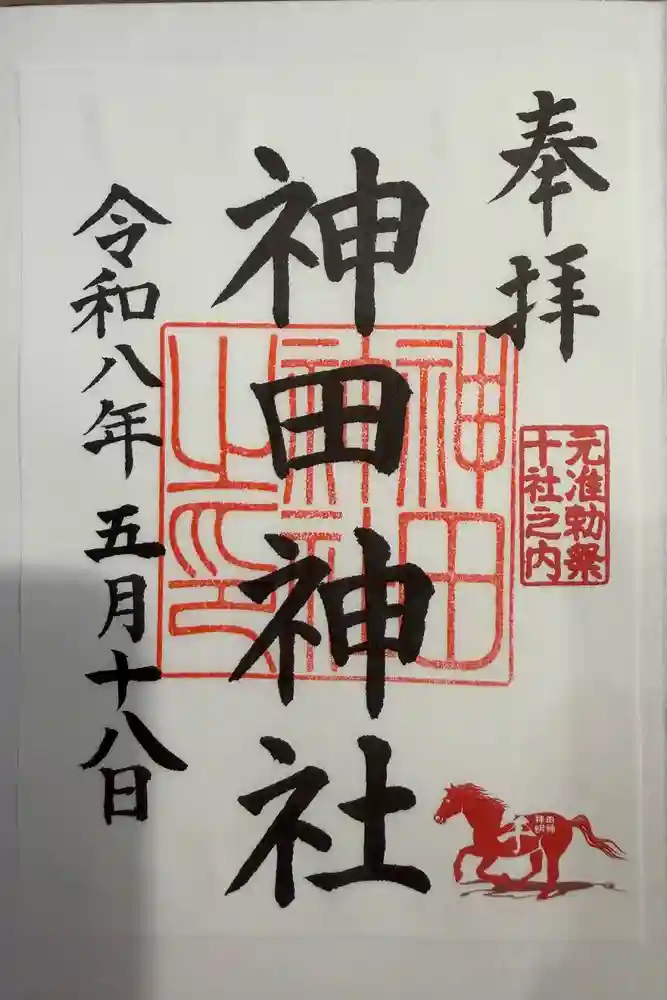 奉拝
元准勅祭
十社之内
神田神社
神田
神社
之印
令和八年五月十八日
午
神田
明神